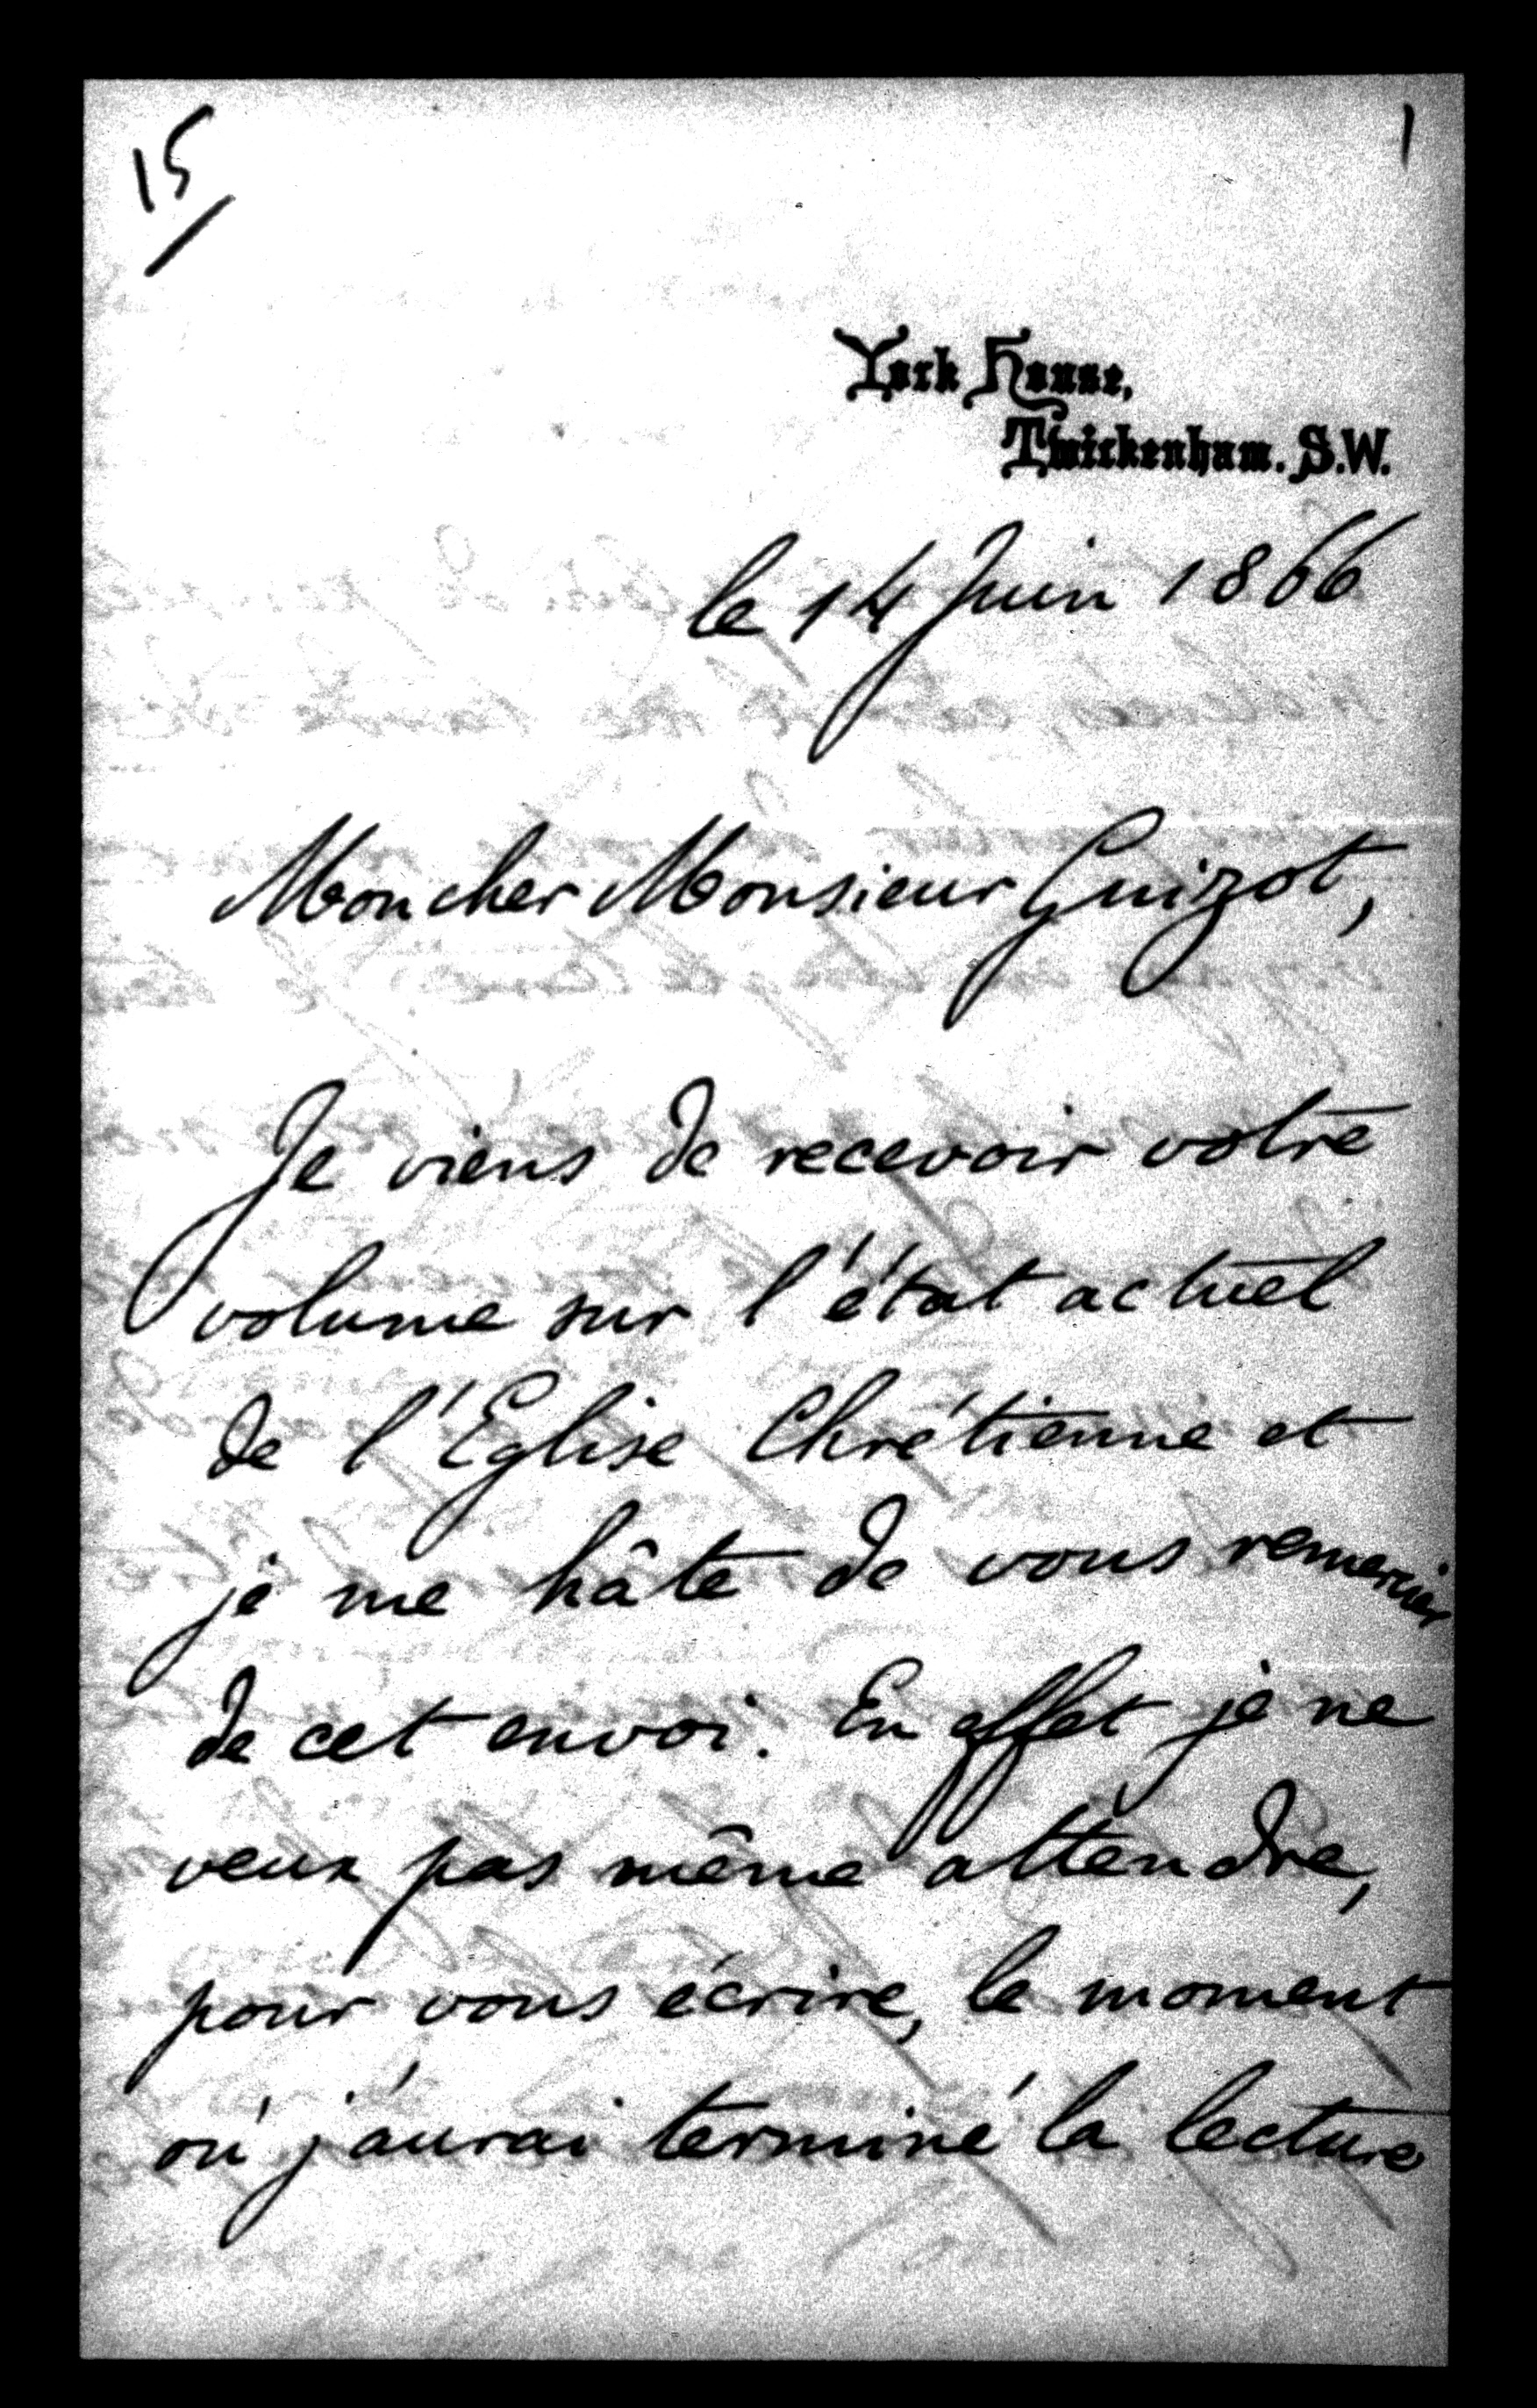 15
1
York House,
Twickenham. S.W.
le 14 Juin 1866
Mon cher Monsieur Guizot,
Je viens de recevoir votre
volume sur l'état actuel
de l'Eglise Chrétienne et
je me hâte de vous remercier
de cet envoi. En effet je ne
veux pas même attendre,
pour vous écrire, le moment
où j'aurai terminé la lecture